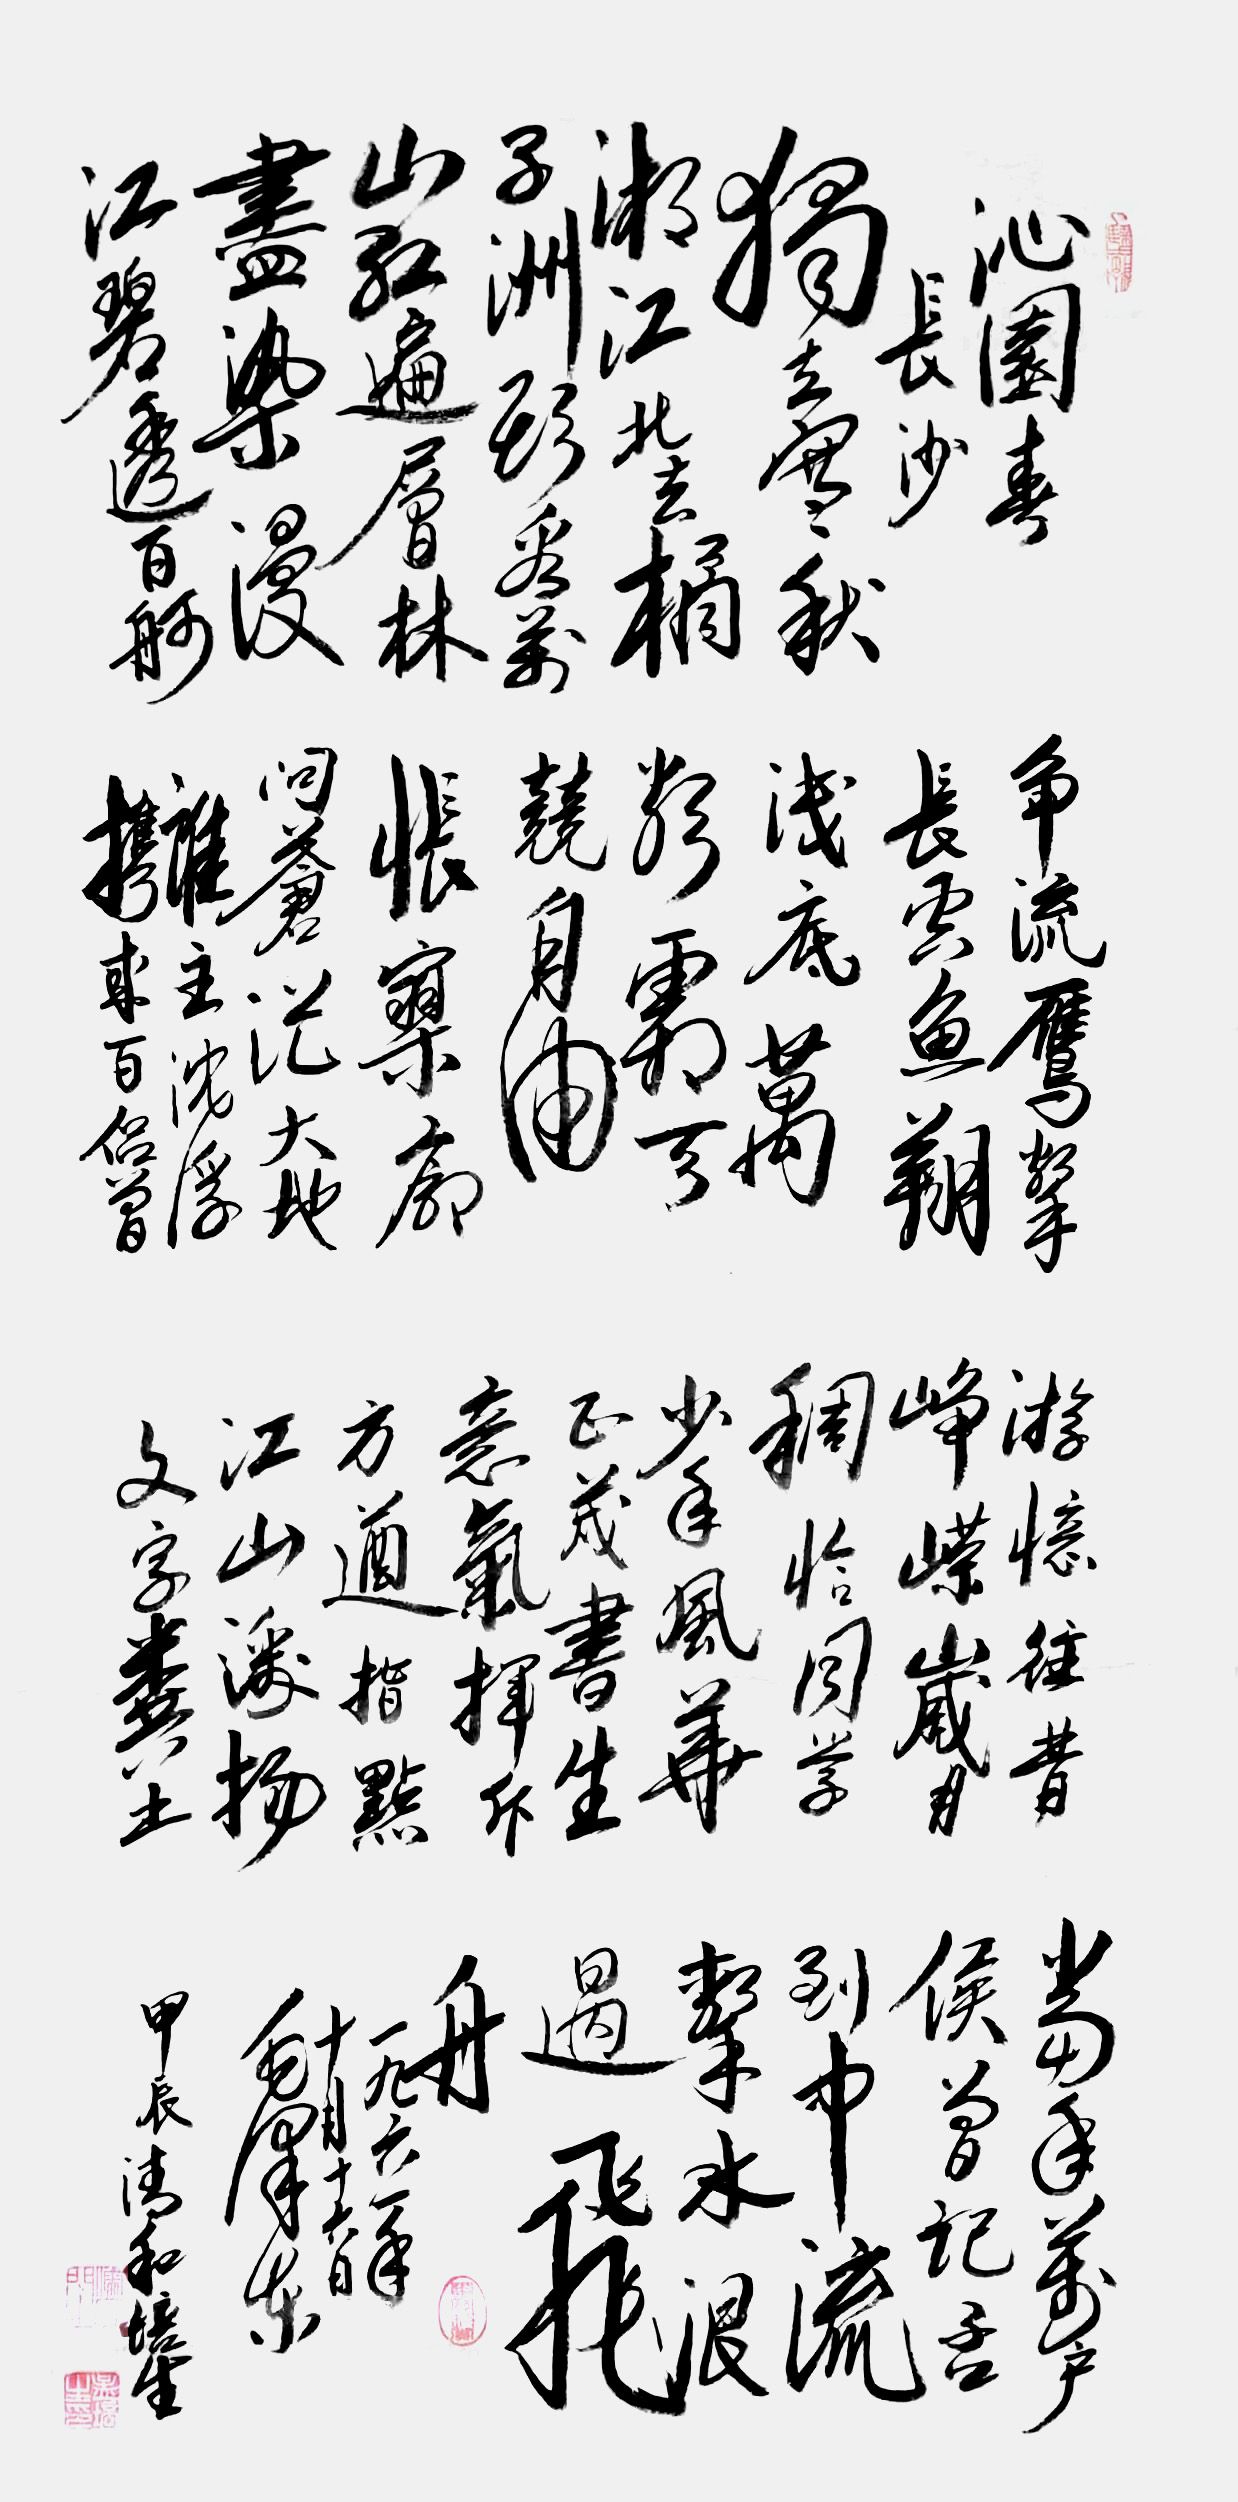 沁園春
長沙
獨立寒秋
湘江北去橘
子洲頭看萬
山紅遍層林
盡染漫
江碧透百舸
争流鹰擊
長空魚翔
浅底萬
類霜天
競自由
悵寥廓
問蒼茫大地
誰主沈浮
攜来百侣曾
游憶往昔
峥嵘歲月
稠恰同学
少年風華
正茂書生
意氣揮斥
方遒指點
江山激扬
文字糞土
當年萬户
侯曾記否
到中流
擊水浪
遏飛
舟
一九六一年
十月十六日
毛澤東
甲辰清和